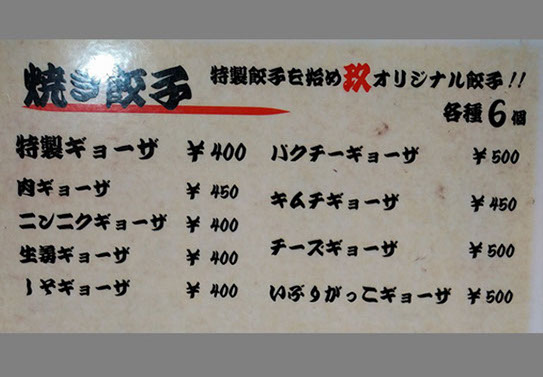 焼き餃子
特製餃子を始め玖オリジナル餃子!!
各種6個
特製ギョーザ ¥400
肉ギョーザ ¥450
ニンニクギョーザ ¥400
生姜ギョーザ ¥400
しそギョーザ ¥400
パクチーギョーザ ¥500
キムチギョーザ ¥450
チーズギョーザ ¥500
いぶりがっこギョーザ ¥500